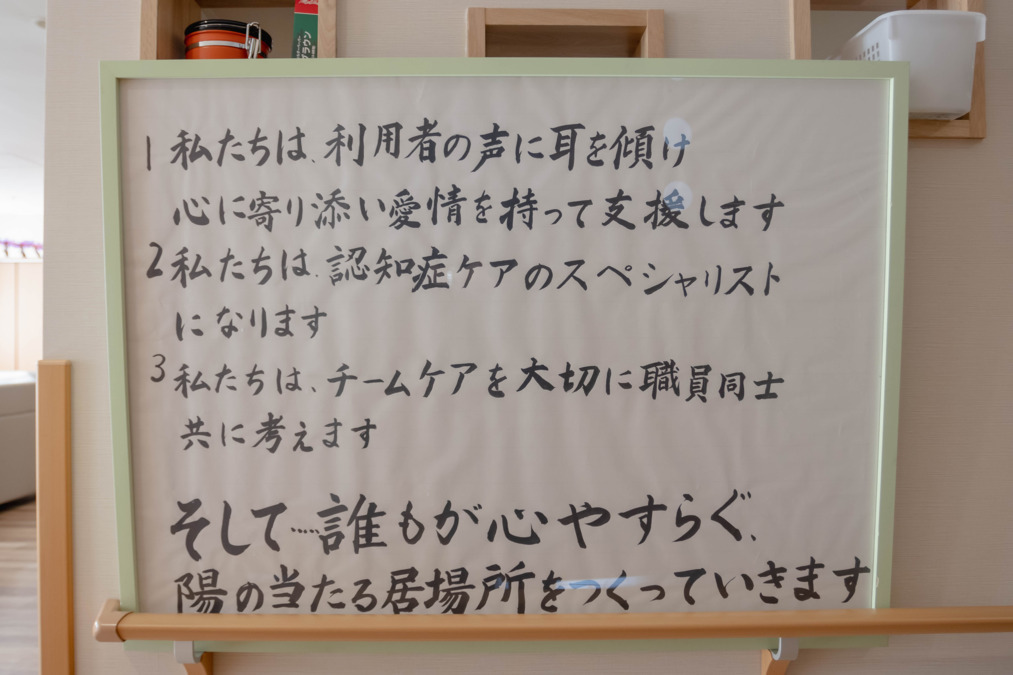 ブラウン
1 私たちは、利用者の声に耳を傾け
心に寄り添い愛情を持って支援します
2 私たちは、認知症ケアのスペシャリスト
になります
3 私たちは、チームケアを大切に職員同士
共に考えます
そして……誰もが心やすらぐ、
陽の当たる居場所をつくっていきます